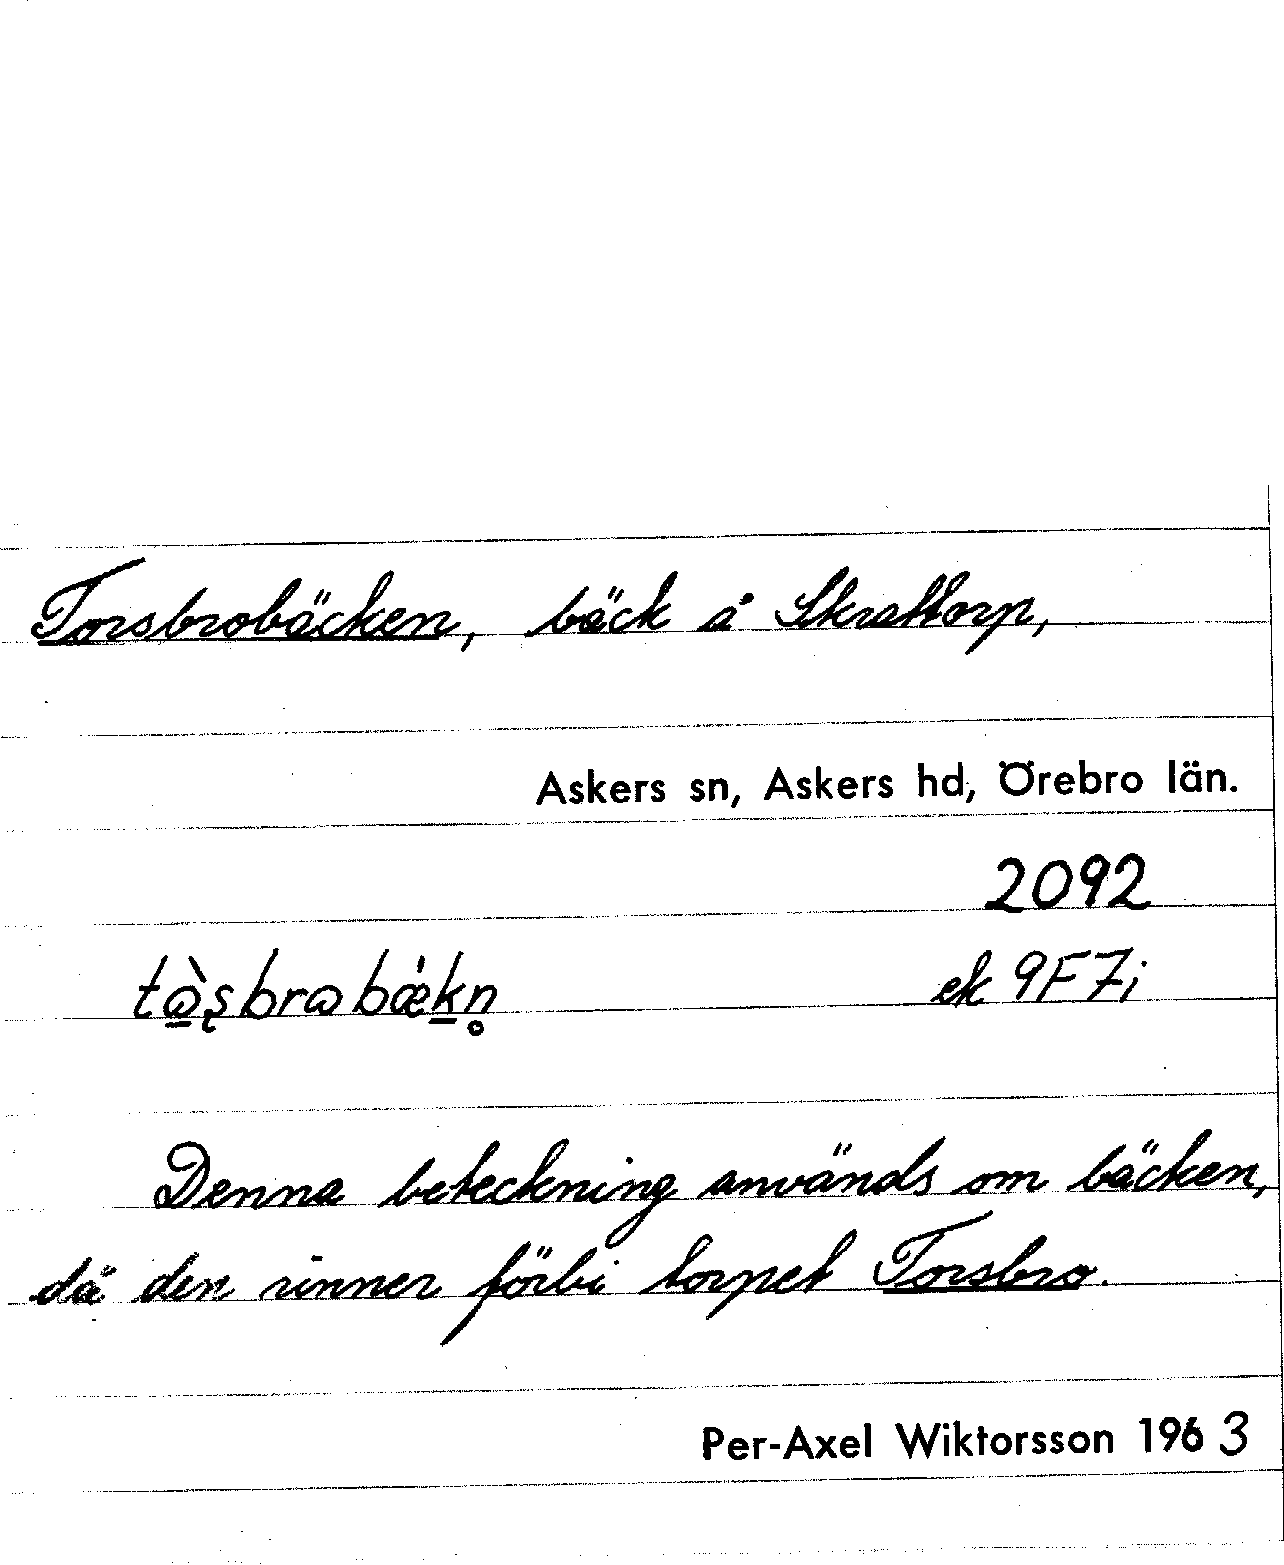 Torsbrobäcken, bäck å Skrattorp,
Askers sn, Askers hd, Örebro län.
2092
ek 9F7i
Denna beteckning används om bäcken,
då den rinner förbi torpet Torsbro.
Per-Axel Wiktorsson 1963